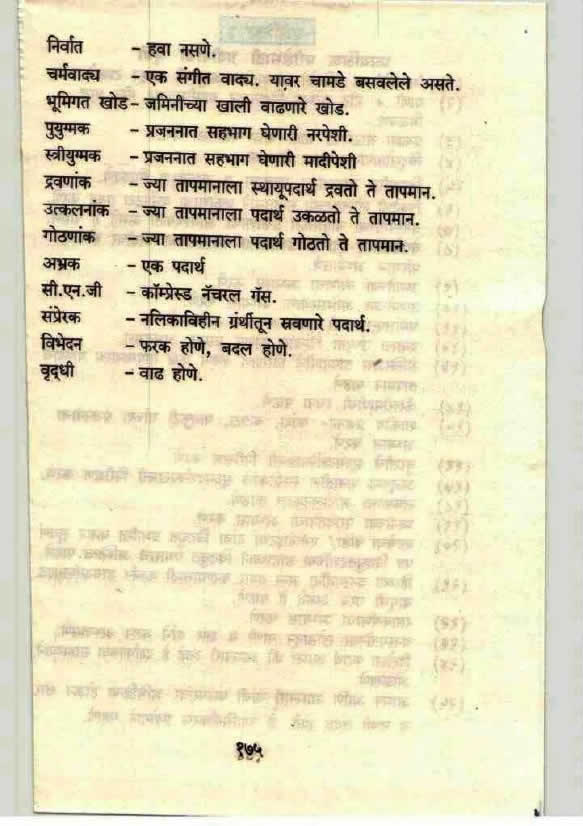 निर्वात - हवा नसणे.
चर्मवाद्य - एक संगीत वाद्य. यावर चामडे बसवलेले असते.
भूमिगत खोड - जमिनीच्या खाली वाढणारे खोड.
पुयुग्मक - प्रजननात सहभाग घेणारी नरपेशी.
स्त्रीयुग्मक - प्रजननात सहभाग घेणारी मादीपेशी
द्रवणांक - ज्या तापमानाला स्थायूपदार्थ द्रवतो ते तापमान.
उत्कलनांक - ज्या तापमानाला पदार्थ उकळतो ते तापमान.
गोठणांक - ज्या तापमानाला पदार्थ गोठतो ते तापमान.
अभ्रक - एक पदार्थ
सी.एन.जी - कॉम्प्रेस्ड नॅचरल गॅस.
संप्रेरक - नलिकाविहीन ग्रंथीतून स्रवणारे पदार्थ.
विभेदन - फरक होणे, बदल होणे.
वृद्धी - वाढ होणे.
१७५